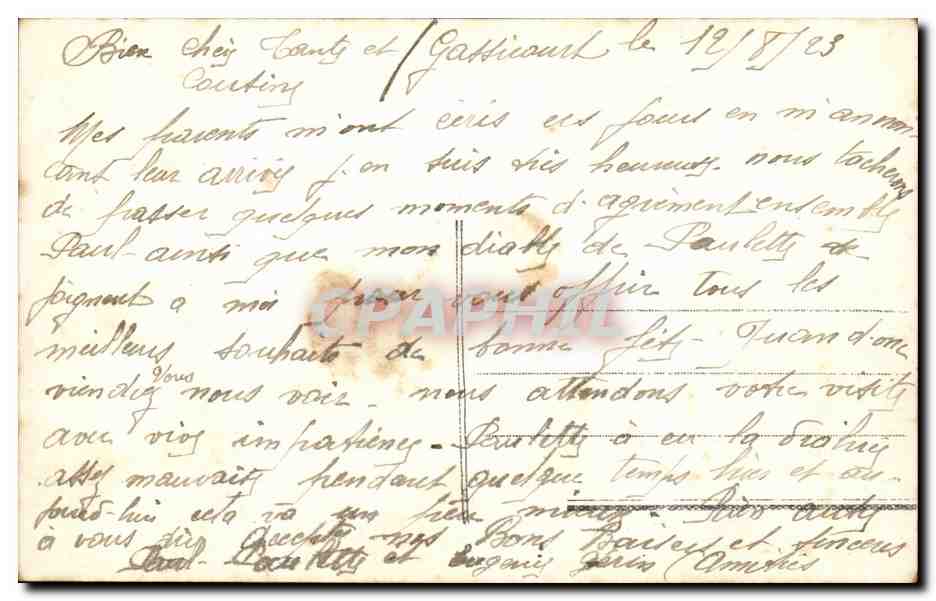 Bien Chers Tante et / Gassicourt le 12/8/23
Cousins
Mes parents m'ont écris ces jours en m'annon-
cant leur arrivée j'en suis très heureuse. nous tacherons
de passer quelques moments d'agrément ensemble
Paul ainsi que mon diable de Paulette se
joignent a moi pour vous offrir tous les
meilleurs souhaits de bonne fête - Quand donc
viendrez vous nous voir - nous attendons votre visite
avec vive impatience - Paulette à eu la
assez mauvaise pendant quelque temps hier et au-
jourd-hui cela va un peu mieux.
à vous dire acceptez nos Bons Baisers et sincères
Paul - Paulette et Eugenie Amitiés
CPAPHIL